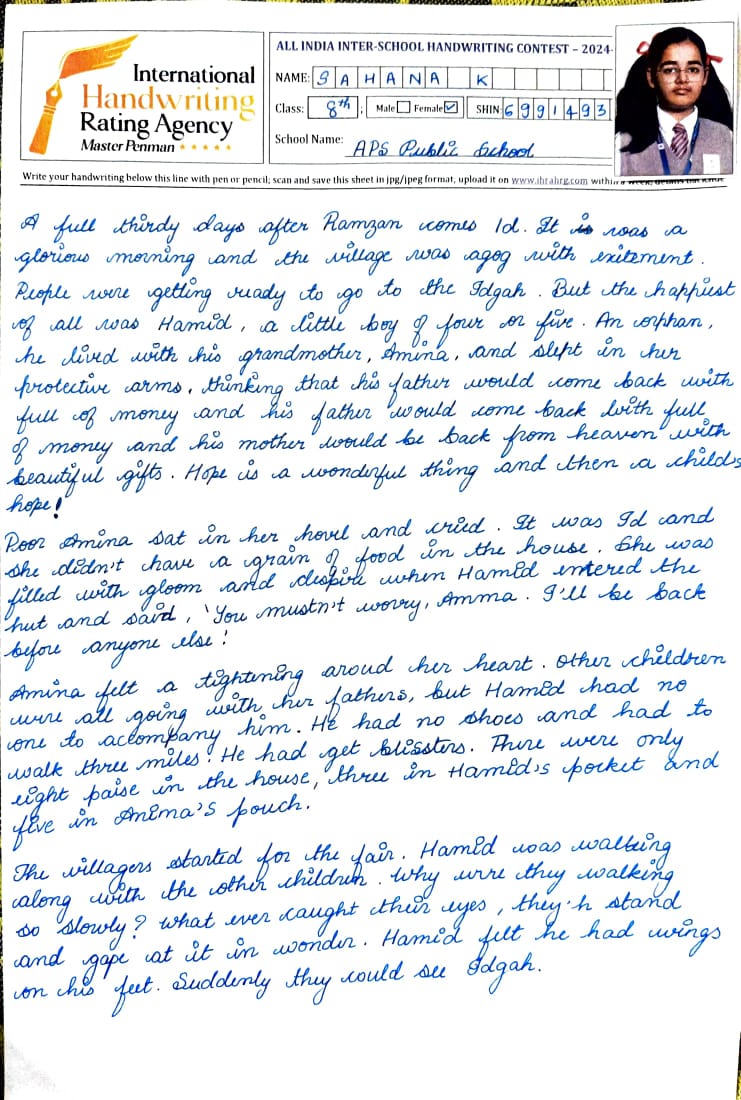 International
Handwriting
Rating Agency
Master Penman
ALL INDIA INTER-SCHOOL HANDWRITING CONTEST – 2024-
NAME: SAHANA K
Class: 8th ; Male Female SHIN: 6991493
School Name: APS Public School
Write your handwriting below this line with pen or pencil; scan and save this sheet in jpg/jpeg format, upload it on www.ihrahrg.com within a week,
A full thirdy days after Ramzan comes Id. It is was a
glorious morning and the village was agog with exitement.
People were getting ready to go to the Idgah. But the happiest
of all was Hamid, a little boy of four or five. An orphan,
he lived with his grandmother, Amina, and slept in her
protective arms, thinking that his father would come back with
full of money and his father would come back with full
of money and his mother would be back from heaven with
beautiful gifts. Hope is a wonderful thing and then a child's
hope!
Poor Amina sat in her hovel and cried. It was Id and
she didn't have a grain of food in the house. She was
filled with gloom and despire when Hamid entered the
hut and said, 'You mustn't worry, Amma. I'll be back
before anyone else!
Amina felt a tightening aroud her heart. Other children
were all going with her fathers, but Hamid had no
one to accompany him. He had no shoes and had to
walk three miles! He had get blissters. There were only
eight paise in the house, three in Hamid's pocket and
five in Anima's pouch.
The villagers started for the fair. Hamid was walking
along with the other children. Why were they walking
so slowly? What ever caught their eyes, they'h stand
and gape at it in wonder. Hamid felt he had wings
on his feet. Suddenly they could see Idgah.